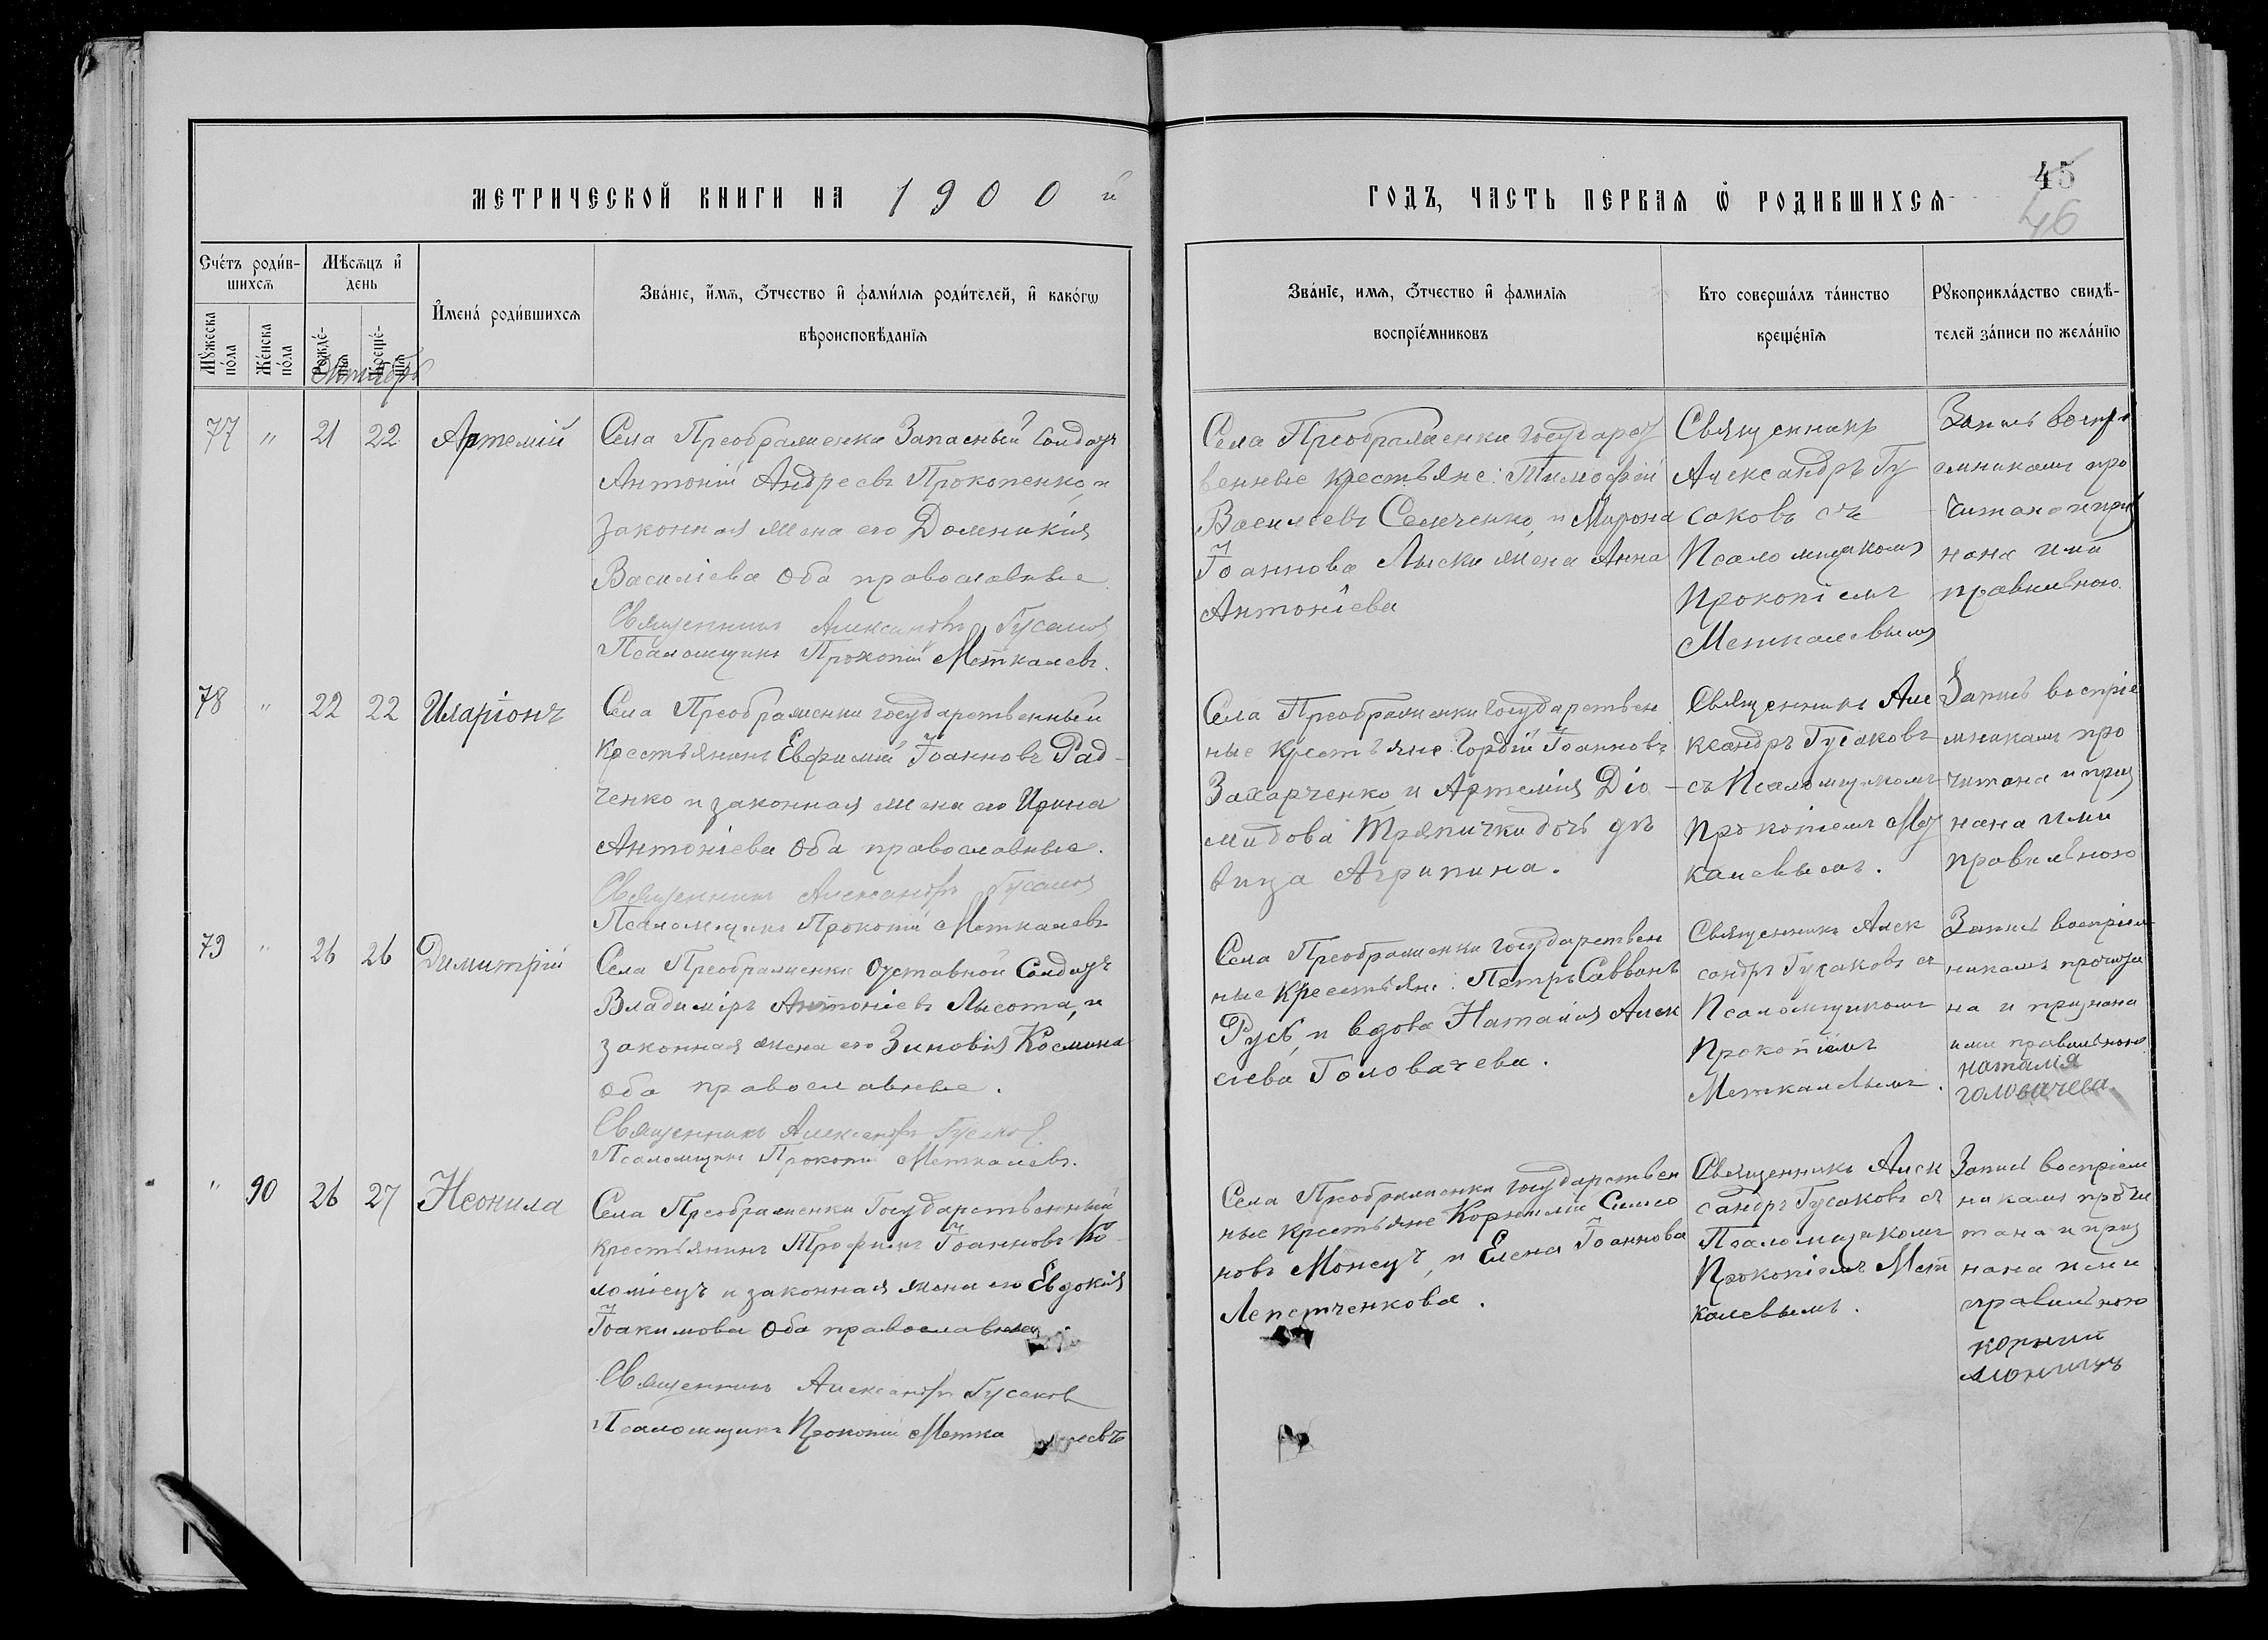 МЕТРИЧЕСКОЙ КНИГИ НА 1900 й
ГОДЪ, ЧАСТЬ ПЕРВАЯ Ѿ РОДИВШИХСЯ
45
46
Сче́тъ роди́в-
шихсѧ
Мꙋ́жеска
по́ла
Же́нска
по́ла
Мѣ́сѧцъ и҆
день
Рожде́-
нїѧ
Креще́-
нїѧ
Октябрь
И҆мена́ роди́вшихсѧ
Зва́нїе, и҆́мѧ, ѻ҆́тчество и҆ фами́лїѧ роди́телей, и҆ како́гѡ
вѣроисповѣ́данїѧ
Зва́нїе, имѧ, ѻ҆́тчество и҆ фамилїѧ
воспрїе́мниковъ
Кто соверша́лъ та́инство
креще́нїѧ
Рꙋкоприкла́дство свидѣ́-
телей за́писи по жела́нїю
77 " 21 22 Артемій
Села Преображенки Запасный Солдатъ
Антоній Андреевъ Прокопенко, и
законная жена его Домникія
Василіева оба православные
Священникъ Александръ Гусаковъ
Псаломщикъ Прокопій Меткалевъ.
Села Преображенки государст
венные крестьяне: Тимофей
Васильевъ Семченко, и Мирона
Іоаннова Лыски жена Анна
Антоніева
Священникъ
Александръ Гу
саковъ съ
Псаломщикомъ
Прокопіемъ
Меткалевымъ
Запись воспрі
емникамъ про
читана и приз
нана ими
правильною.
78 " 22 22 Иларіонъ
Села Преображенки государственный
крестьянинъ Евфимій Іоанновъ Рад-
ченко и законная жена его Ирина
Антоніева оба православные.
Священникъ Александръ Гусаковъ
Псаломщикъ Прокопій Меткалевъ
Села Преображенки государствен
ные крестьяне Гордій Іоанновъ
Захарченко и Артемія Діо-
мидова Тряпички дочь дѣ
вица Агрипина.
Священникъ Але
ксандръ Гусаковъ
съ Псаломщикомъ
Прокопіемъ Мет
калевымъ.
Запись воспріе
мникамъ про
читана и приз
нана ими
правильною
79 " 26 26 Димитрій
Села Преображенки Отставной Солдатъ
Владиміръ Антоніевъ Лысота, и
законная жена его Зиновія Космина
оба православные.
Священникъ Александръ Гусаков
Псаломщикъ Прокопій Меткалевъ.
Села Преображенки государствен
ные крестьяне: Петръ Саввинъ
Русь, и вдова Наталія Алек
сіева Головачева.
Священникъ Алек
сандръ Гусаковъ съ
Псаломщикомъ
Прокопіемъ
Меткалевымъ.
Запись воспріем
никамъ прочита
на и признана
ими правильною
наталія
головачева
" 90 26 27 Неонила
Села Преображенки Государственный
крестьянинъ Трофимъ Іоанновъ Ко-
ломіецъ и законная жена его Евдокія
Іоакимова оба православные.
Священникъ Александръ Гусаков
Псаломщикъ Прокопій Меткалевъ
Села Преображенки государствен
ные крестьяне Корнилій Симео
новъ Монецъ, и Елена Іоаннова
Лепетченкова.
Священникъ Алек
сандръ Гусаковъ съ
Псаломщикомъ
Прокопіемъ Мет
калевымъ.
Запись воспріем
никамъ прочи
тана и приз
нана ими
правильною
корнии